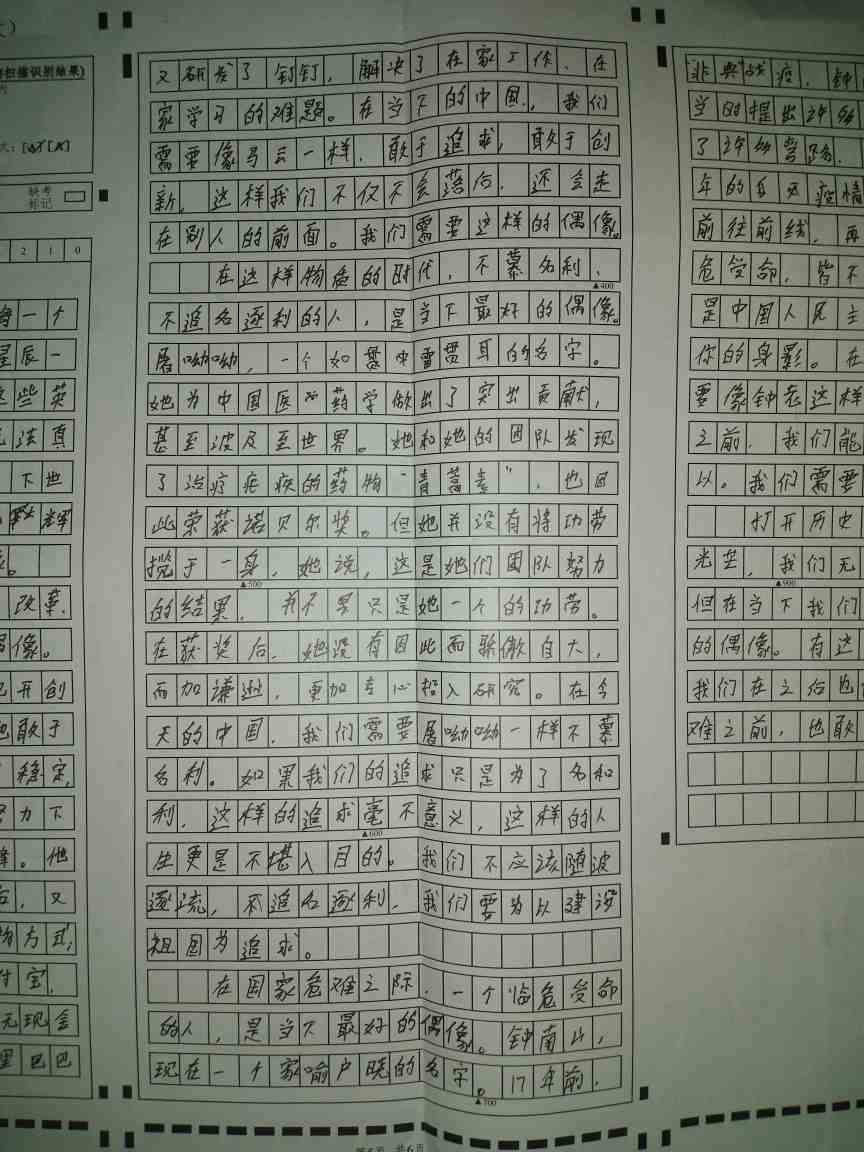 扫描识别结果)
缺考
标记
2 1 0
一个
星辰一
这些英
法真
下也
辉
改革
偶像。
开创
也敢于
稳定,
努力下
。他
后,又
方式,
付宝,
无现金
里巴巴
又研发了钉钉,解决了在家工作、在
家学习的难题。在当下的中国,我们
需要像马云一样,敢于追求,敢于创
新,这样我们不仅不会落后,还会走
在别人的前面。我们需要这样的偶像。
在这样物质的时代,不慕名利、
▲400
不追名逐利的人,是当下最好的偶像。
屠呦呦,一个如雷贯耳的名字。
她为中国医药学做出了突出贡献,
甚至波及至世界。她和她的团队发现
了治疗疟疾的药物“青蒿素”,也因
此荣获诺贝尔奖。但她并没有将功劳
揽于一身,她说,这是她们团队努力
▲500
的结果,并不是只是她一个的功劳。
在获奖后,她没有因此而骄傲自大,
而加谦逊,更加专心投入研究。在今
天的中国,我们需要屠呦呦一样不慕
名利。如果我们的追求只是为了名和
利,这样的追求毫不意义,这样的人
▲600
生更是不堪入目的。我们不应该随波
逐流,不追名逐利,我们要为以建设
祖国为追求。
在国家危难之际,一个临危受命
的人,是当下最好的偶像。钟南山,
现在一个家喻户晓的名字。17年前,
▲700
“非典”战疫,钟
当的提出
了
年的
疫情
前往前线,再
危受命,皆不
是中国人民主
你的身影。在
要像钟老这样
之前,我们能
以。我们需要
打开历史
光芒,我们无
▲900
但在当下我们
的偶像。有这
我们在之后也
难之前,也敢
共6页